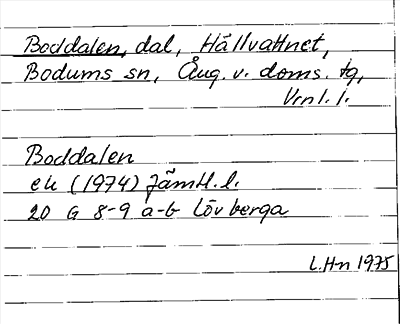 Boddalen, dal, Hällvattnet,
Bodums sn, Ång. v. doms. tg,
Vrnl. l.
Boddalen
ek (1974) Jämtl. l.
20 G 8-9 a-b Lövberga
L. Hn 1975